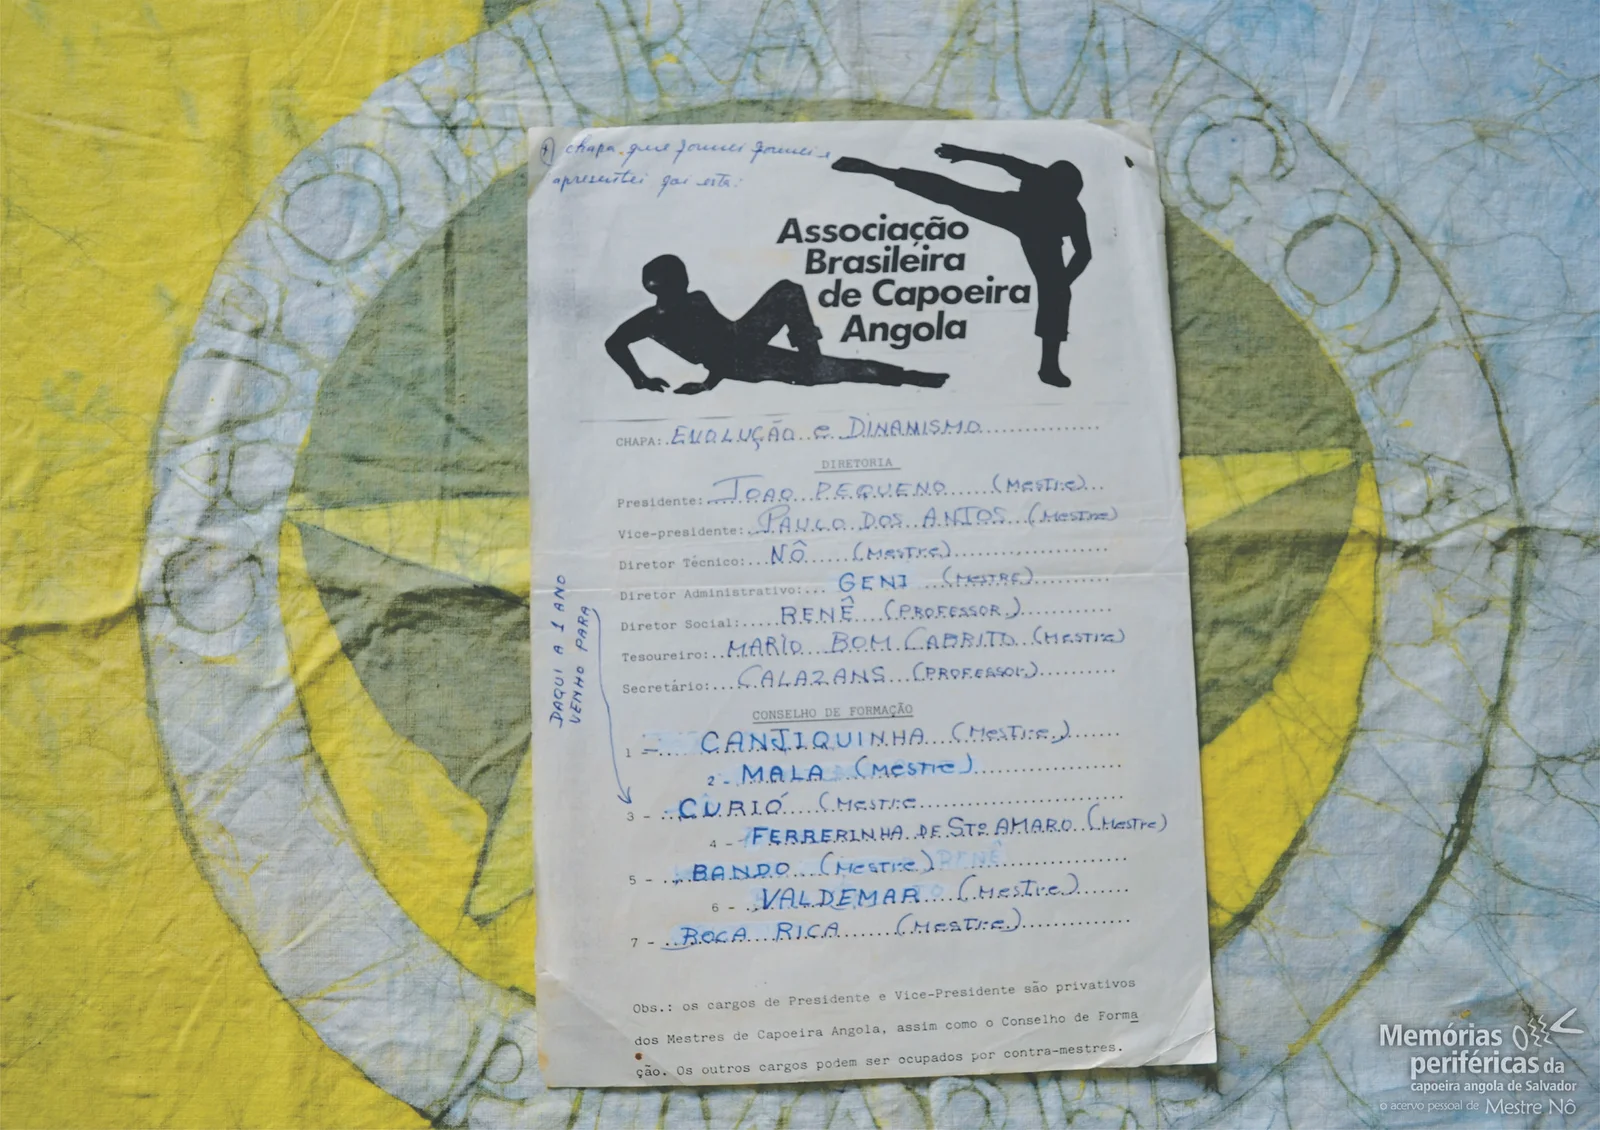 chapa que formei formei e
apresentei foi esta:
Associação
Brasileira
de Capoeira
Angola
CHAPA: EVOLUÇÃO e DINAMISMO
DIRETORIA
Presidente: JOAO PEQUENO (Mestre)
Vice-presidente: PAULO DOS ANJOS (Mestre)
Diretor Técnico: NÔ (Mestre)
Diretor Administrativo: GENI (MESTRE)
Diretor Social: RENÊ (PROFESSOR)
Tesoureiro: MARIO BOM CABRITO (Mestre)
Secretário: CALAZANS (PROFESSOR)
DAQUI A 1 ANO
VENHO PARA
CONSELHO DE FORMAÇÃO
1 - CANJIQUINHA (Mestre)
2 - MALA (Mestre)
3 - CURIÓ (Mestre
4 - FERRERINHA DE Sto AMARO (Mestre)
5 - BANDO (Mestre) RENÊ
6 - VALDEMAR (Mestre)
7 - BOCA RICA (Mestre)
Obs.: os cargos de Presidente e Vice-Presidente são privativos
dos Mestres de Capoeira Angola, assim como o Conselho de Forma
ção. Os outros cargos podem ser ocupados por contra-mestres.
Memórias
periféricas da
capoeira angola de Salvador
o acervo pessoal de Mestre Nô